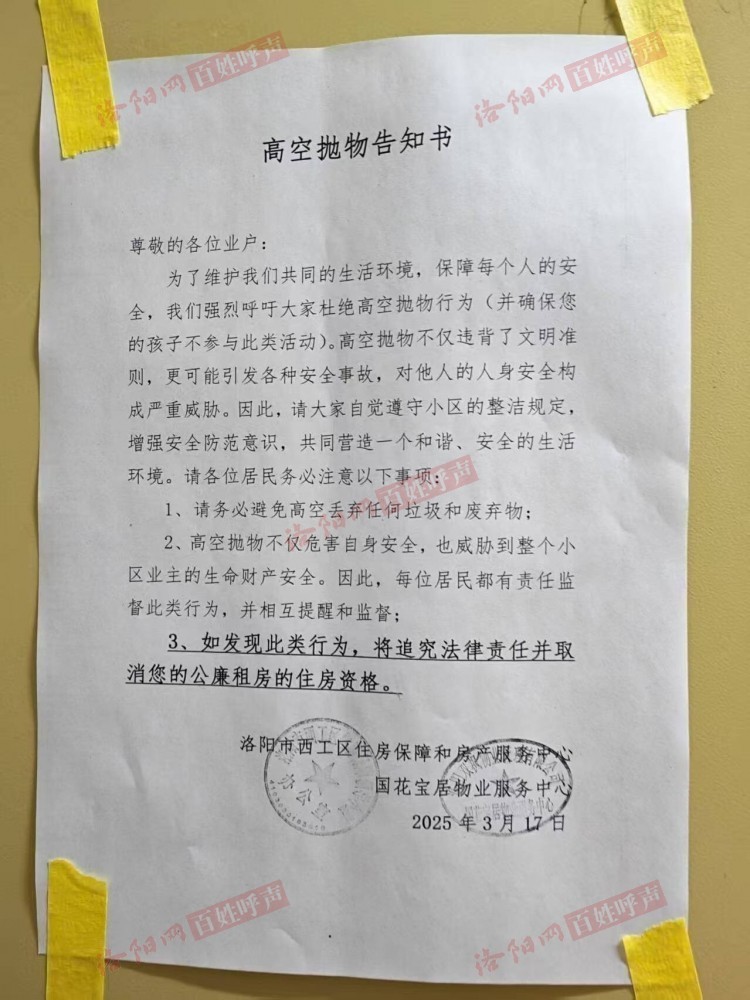 洛阳网 百姓呼声
洛阳网 百姓呼声
高空抛物告知书
尊敬的各位业户：
为了维护我们共同的生活环境，保障每个人的安
全，我们强烈呼吁大家杜绝高空抛物行为（并确保您
的孩子不参与此类活动）。高空抛物不仅违背了文明准
则，更可能引发各种安全事故，对他人的人身安全构
成严重威胁。因此，请大家自觉遵守小区的整洁规定，
增强安全防范意识，共同营造一个和谐、安全的生活
环境。请各位居民务必注意以下事项：
洛阳网 百姓呼声
1、请务必避免高空丢弃任何垃圾和废弃物；
2、高空抛物不仅危害自身安全，也威胁到整个小
区业主的生命财产安全。因此，每位居民都有责任监
督此类行为，并相互提醒和监督；
3、如发现此类行为，将追究法律责任并取
消您的公廉租房的住房资格。
洛阳市西工区住房保障和房产服务中心
办公室
国花宝居物业服务中心
国花宝居物业服务中心
2025年3月17日
洛阳网 百姓呼声
洛阳网 百姓呼声